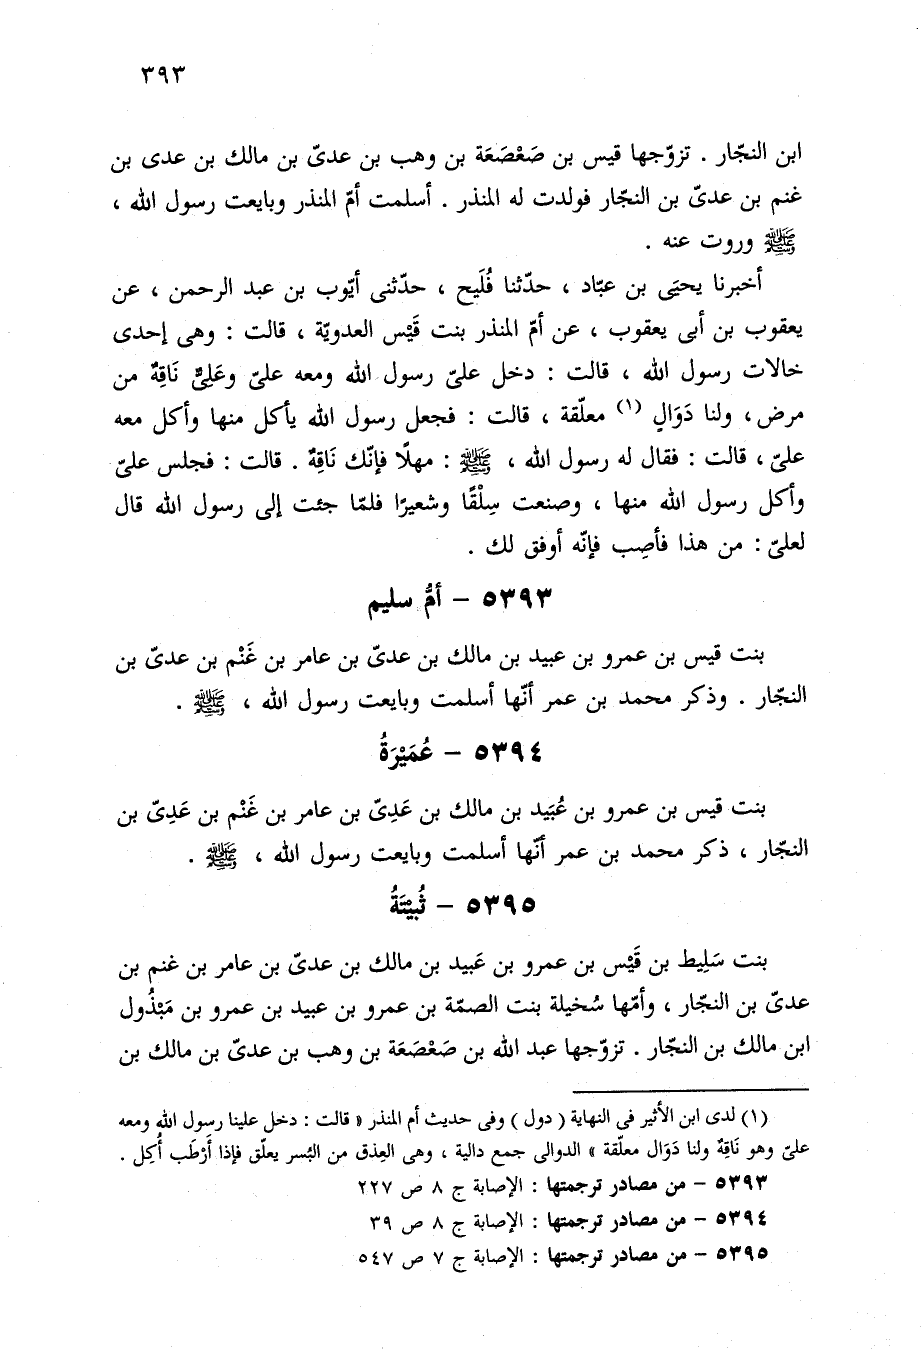 ٣٩٣
ابن النجّار . تزوّجها قيس بن صَعْصَعَة بن وهب بن عدىّ بن مالك بن عدى بن
غنم بن عدىّ بن النجّار فولدت له المنذر . أسلمت أمّ المنذر وبايعت رسول الله ،
ﷺ وروت عنه .
أخبرنا يحيَى بن عبّاد ، حدّثنا فُلَيح ، حدّثنى أيّوب بن عبد الرحمن ، عن
يعقوب بن أبى يعقوب ، عن أمّ المنذر بنت قَيْس العدويّة ، قالت : وهى إحدى
خالات رسول الله ، قالت : دخل علىّ رسول الله ومعه علىّ وعَلِىٌّ نَاقِهٌ من
مرض، ولنا دَوَالٍ (١) معلّقة ، قالت : فجعل رسول الله يأكل منها وأكل معه
علىّ ، قالت : فقال له رسول الله ، ﷺ : مهلًا فإنّك نَاقِهٌ . قالت : فجلس علىّ
وأكل رسول الله منها ، وصنعت سِلْقًا وشعيرًا فلمّا جئت إلى رسول الله قال
لعلىّ : من هذا فأصِب فإنّه أوفق لك .
٥٣٩٣ – أمُّ سليم
بنت قيس بن عمرو بن عبيد بن مالك بن عدىّ بن عامر بن غَنْم بن عدىّ بن
النجّار . وذكر محمد بن عمر أنّها أسلمت وبايعت رسول الله ، ﷺ .
٥٣٩٤ – عُمَيْرَةُ
بنت قيس بن عمرو بن عُبَيد بن مالك بن عَدِىّ بن عامر بن غَنْم بن عَدِىّ بن
النجّار ، ذكر محمد بن عمر أنّها أسلمت وبايعت رسول الله ، ﷺ .
٥٣٩٥ – ثُبَيْتَةُ
بنت سَلِيط بن قَيْس بن عمرو بن عَبيد بن مالك بن عدىّ بن عامر بن غنم بن
عدىّ بن النجّار ، وأمّها سُخيلة بنت الصمّة بن عمرو بن عبيد بن عمرو بن مَبْذُول
ابن مالك بن النجّار . تزوّجها عبد الله بن صَعْصَعَة بن وهب بن عدىّ بن مالك بن
(١) لدى ابن الأثير فى النهاية ( دول ) وفى حديث أم المنذر « قالت : دخل علينا رسول الله ومعه
علىّ وهو نَاقِهٌ ولنا دَوَال معلّقة » الدوالى جمع دالية ، وهى العِذق من البُسر يعلّق فإذا أَرْطَب أُكِل .
٥٣٩٣ – من مصادر ترجمتها : الإصابة ج ٨ ص ٢٢٧
٥٣٩٤ – من مصادر ترجمتها : الإصابة ج ٨ ص ٣٩
٥٣٩٥ – من مصادر ترجمتها : الإصابة ج ٧ ص ٥٤٧